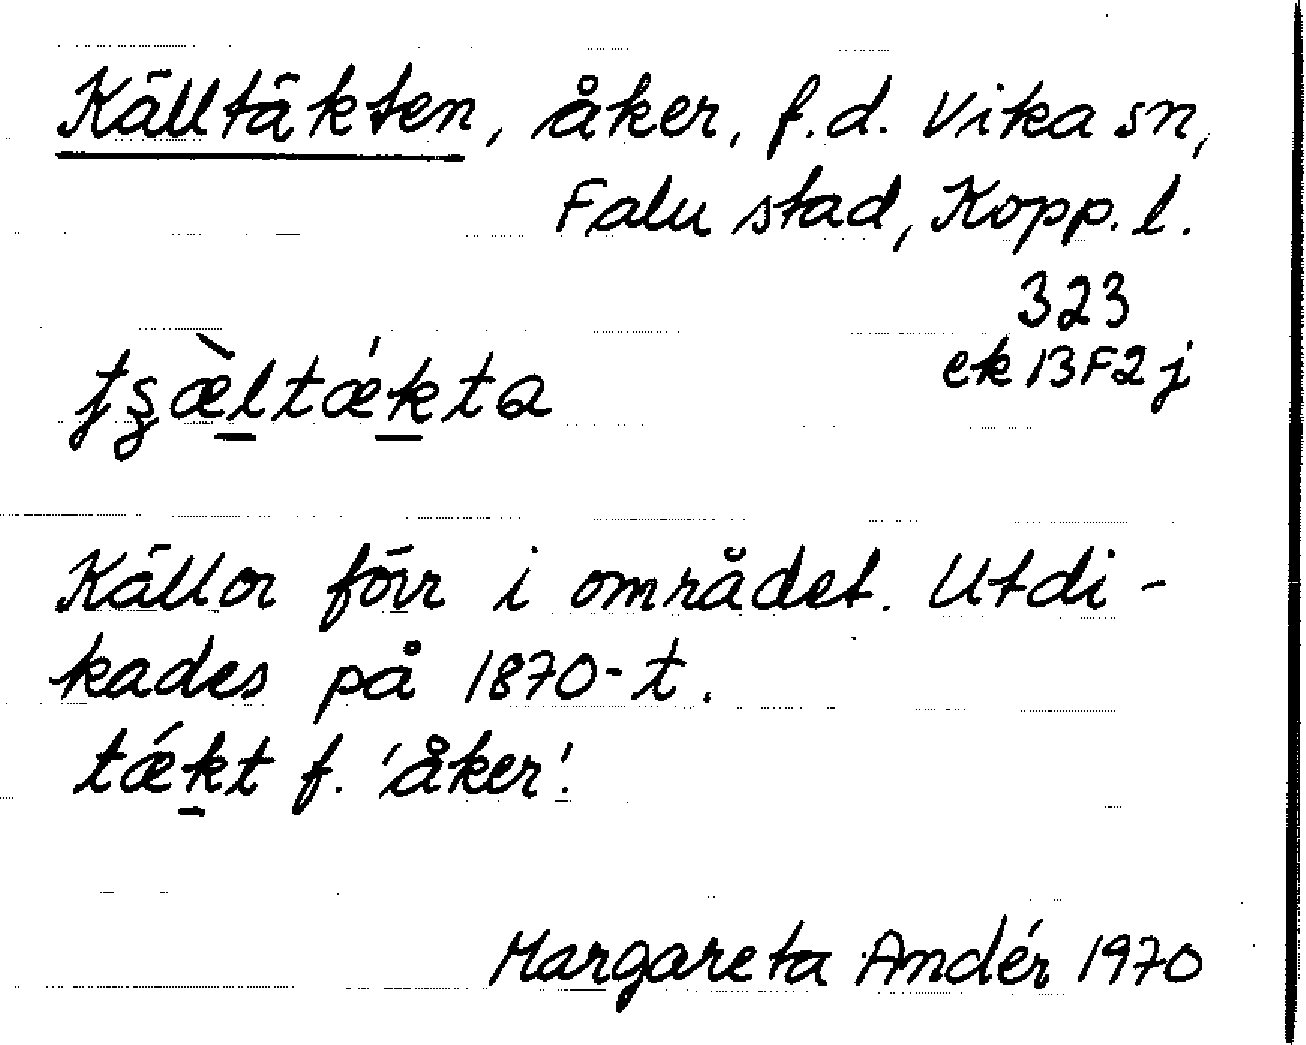 Källtäkten, åker, f.d. Vika sn,
Falu stad, Kopp. l.
323
ek 13F2j
tʂæ̀l̲tǽk̲ta
Källor förr i området. Utdi-
kades på 1870-t.
tǽk̲t f. 'åker'.
Margareta Andér 1970